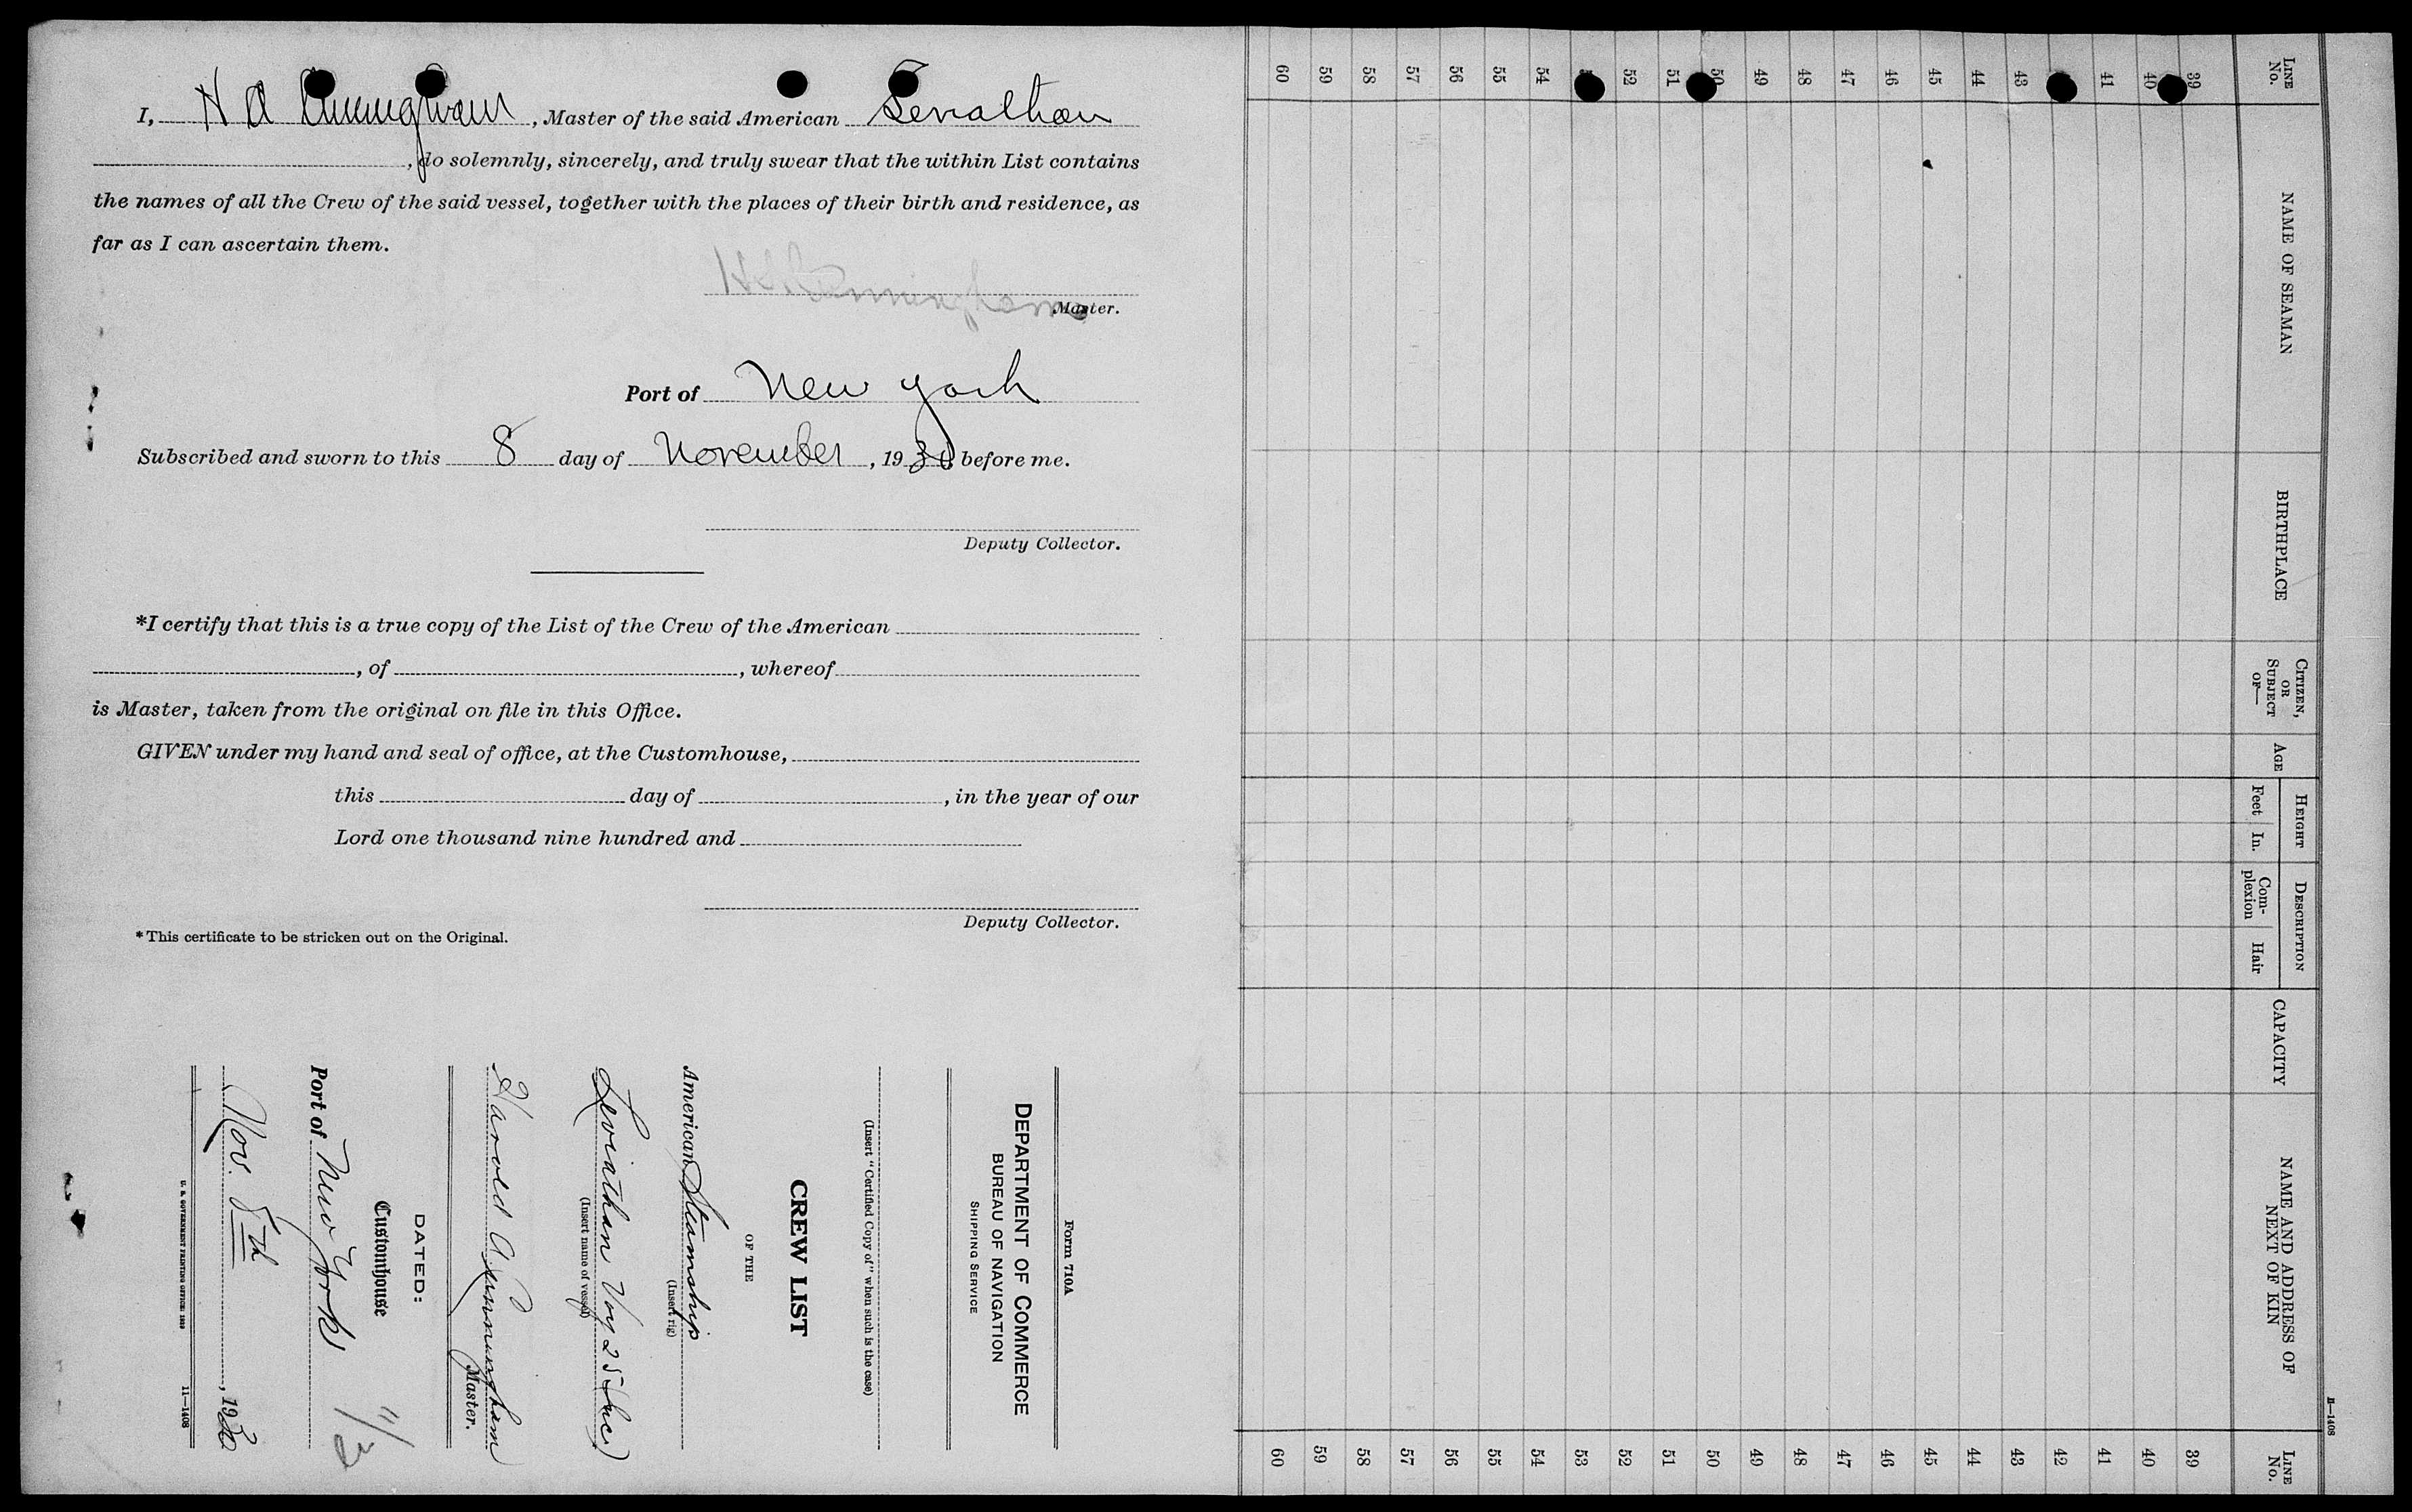 I, H A Cunningham, Master of the said American Leviathan
, do solemnly, sincerely, and truly swear that the within List contains
the names of all the Crew of the said vessel, together with the places of their birth and residence, as
far as I can ascertain them.
H A Cunningham
Master.
Port of New York
Subscribed and sworn to this 8 day of November, 1930 before me.
Deputy Collector.
*I certify that this is a true copy of the List of the Crew of the American
, of , whereof
is Master, taken from the original on file in this Office.
GIVEN under my hand and seal of office, at the Customhouse,
this day of , in the year of our
Lord one thousand nine hundred and
Deputy Collector.
*This certificate to be stricken out on the Original.
Form 710A
DEPARTMENT OF COMMERCE
BUREAU OF NAVIGATION
SHIPPING SERVICE
(Insert "Certified Copy of" when such is the case)
CREW LIST
OF THE
American Steamship
(Insert rig)
Leviathan Voy 25
(Insert name of vessel)
Harold A Cunningham
Master.
DATED:
Customhouse
Port of New York
Nov. 8th, 1930
U. S. GOVERNMENT PRINTING OFFICE: 11—1408
LINE No.
NAME OF SEAMAN
BIRTHPLACE
CITIZEN, OR SUBJECT OF—
AGE
HEIGHT
Feet
In.
DESCRIPTION
Com-
plexion
Hair
CAPACITY
NAME AND ADDRESS OF
NEXT OF KIN
LINE No.
39 39
40 40
41 41
42
43 43
44 44
45 45
46 46
47 47
48 48
49 49
50 50
51 51
52 52
53
54 54
55 55
56 56
57 57
58 58
59 59
60 60
11—1408